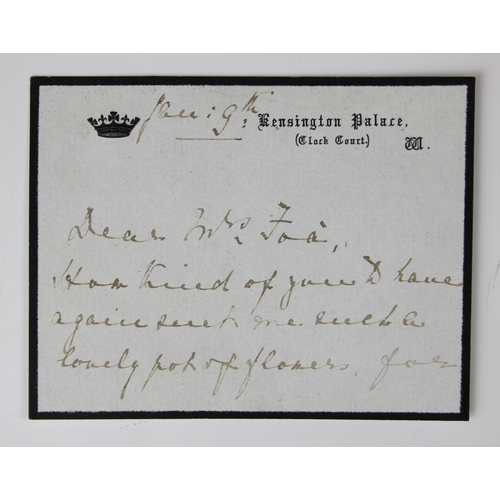 Jan: 9th.
Kensington Palace,
(Clock Court.)
W.
Dear Mrs. Foà,
How kind of you to have
again sent me such a
lovely pot of flowers, for